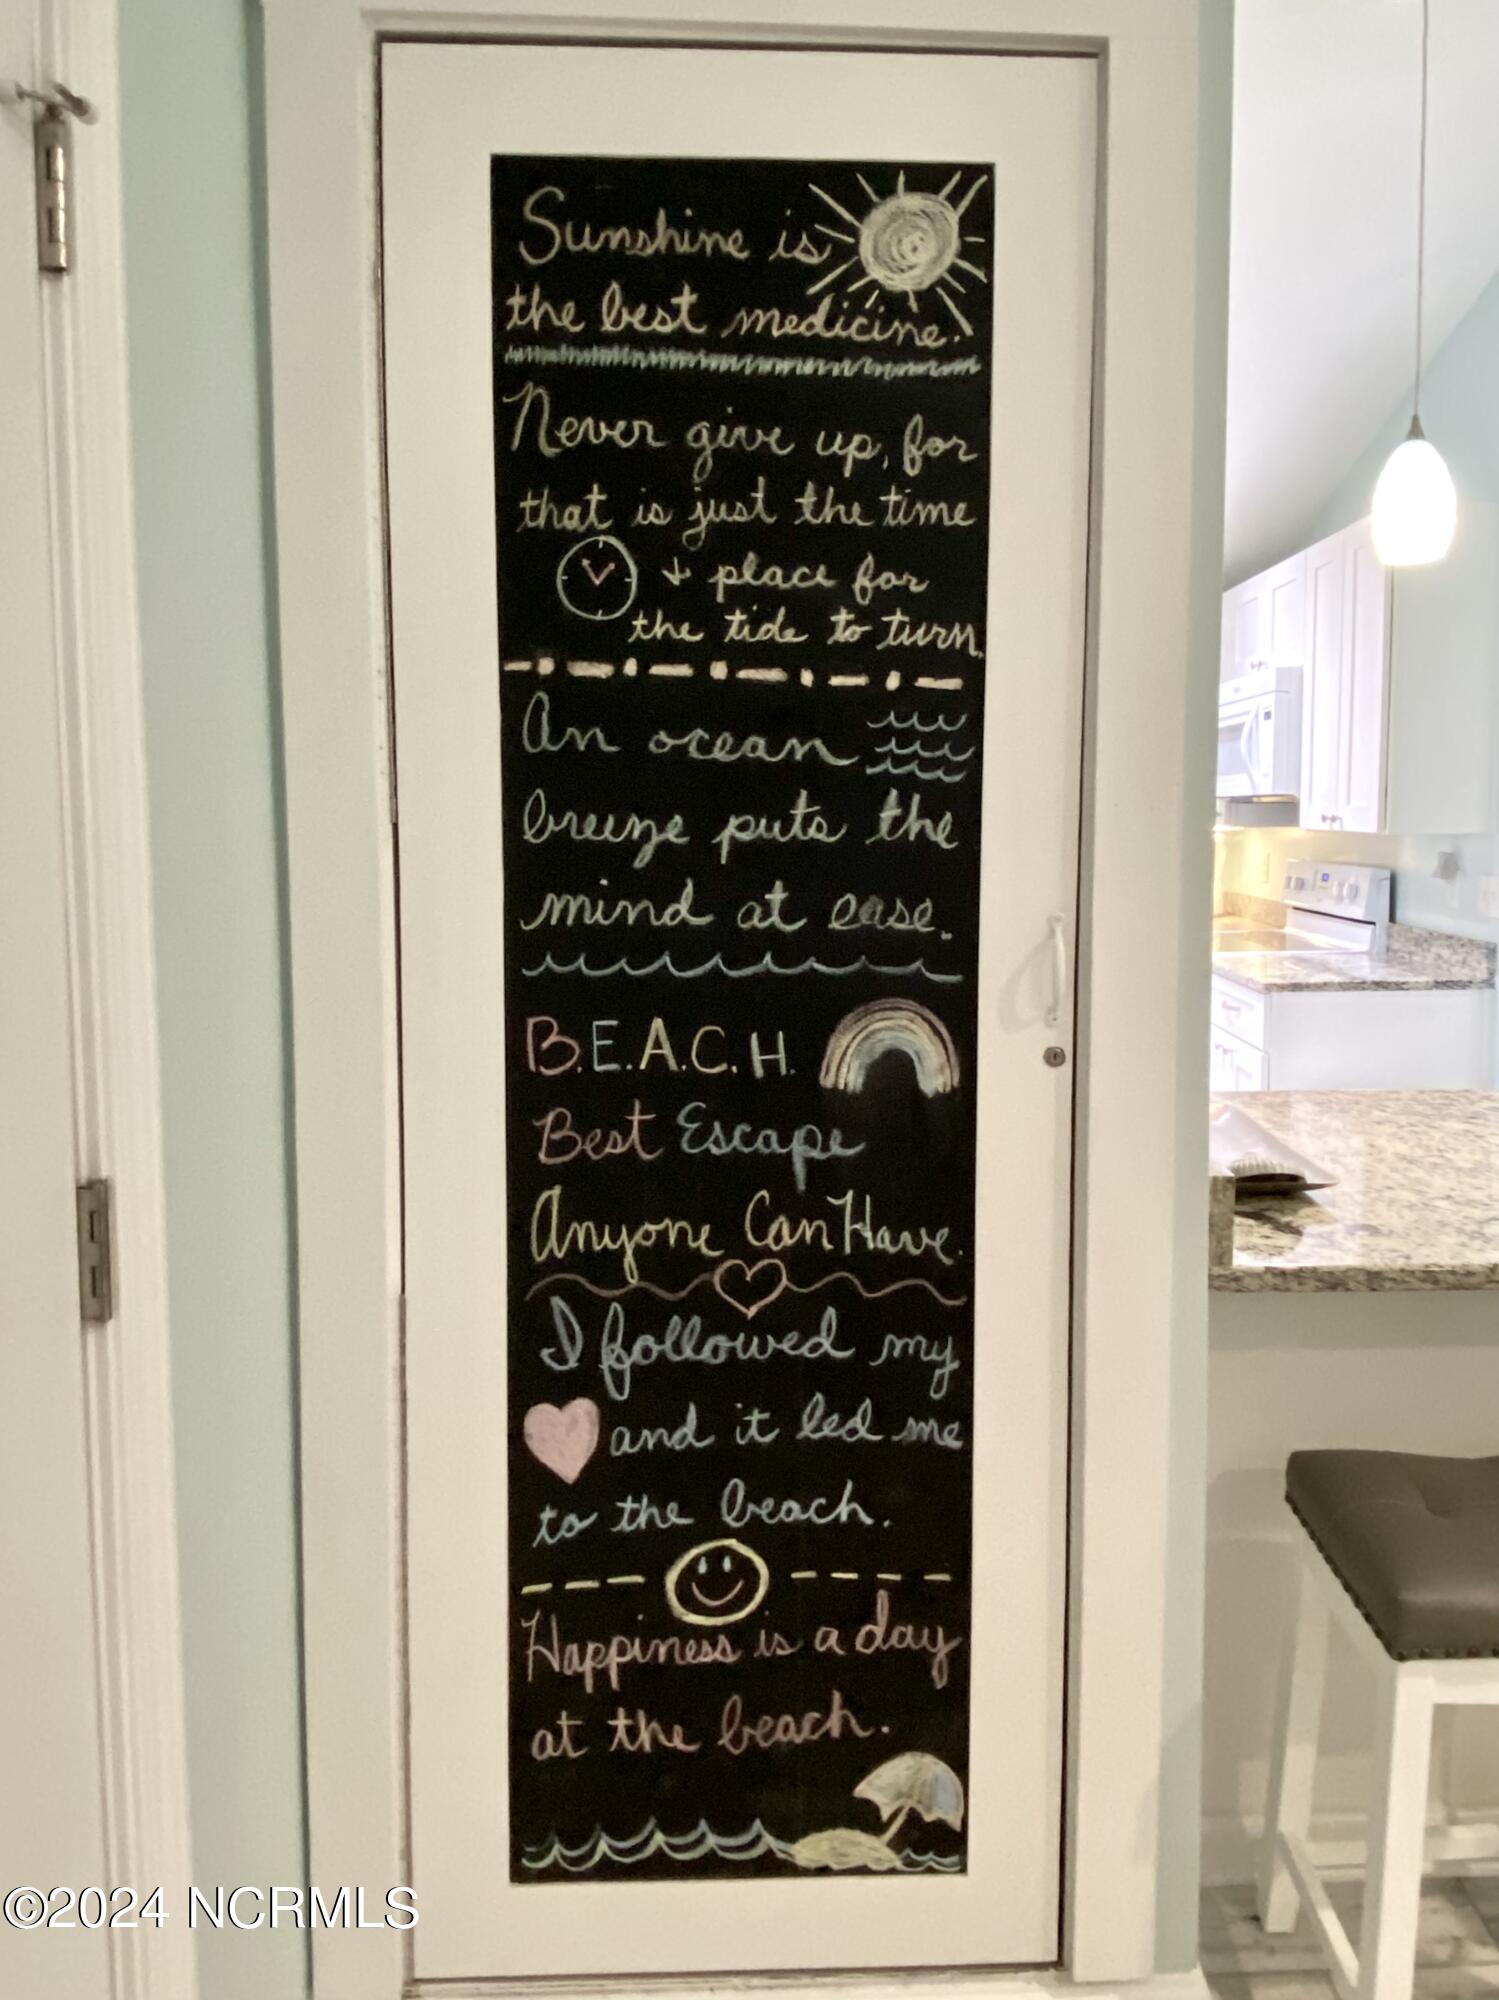 Sunshine is
the best medicine.
Never give up, for
that is just the time
+ place for
the tide to turn.
An ocean
breeze puts the
mind at ease.
B.E.A.C.H.
Best Escape
Anyone Can Have.
I followed my
and it led me
to the beach.
Happiness is a day
at the beach.
©2024 NCRMLS